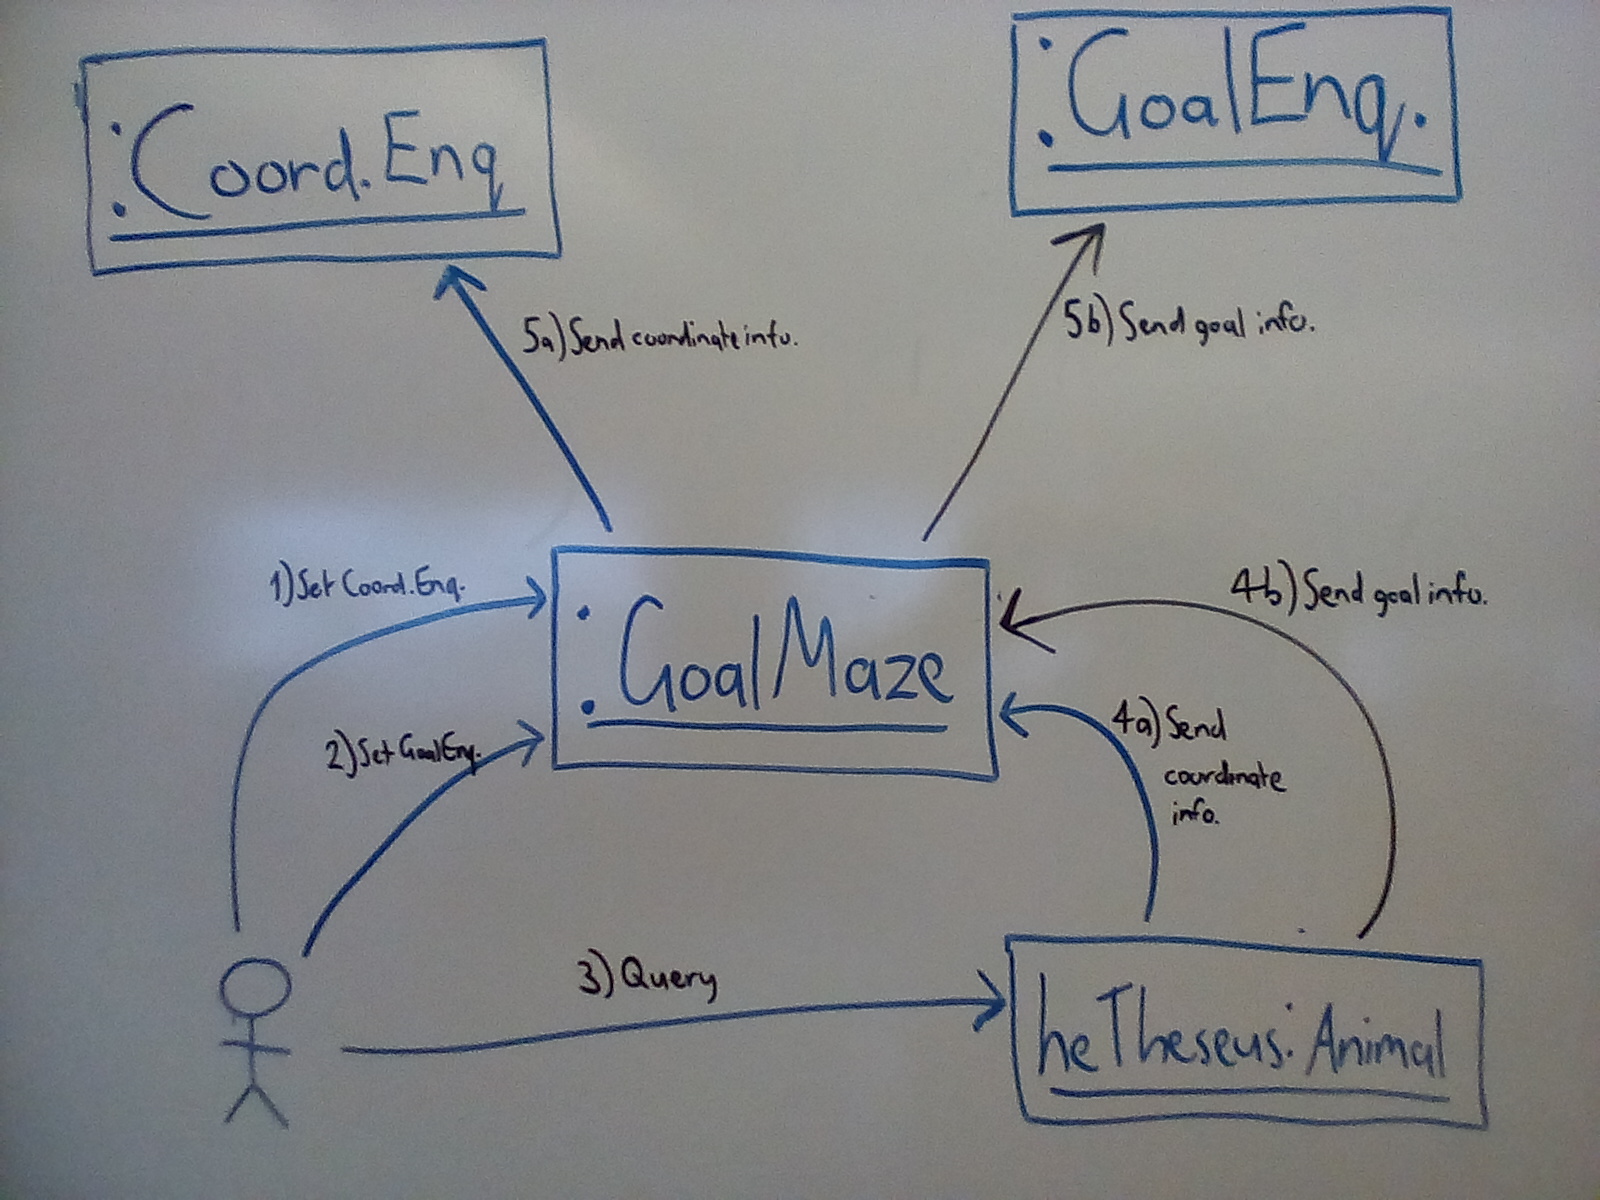 :Coord.Enq
:GoalEnq.
5a) Send coordinate info.
5b) Send goal info.
1) Set Coord.Enq.
4b) Send goal info.
:GoalMaze
2) Set GoalEnq.
4a) Send
coordinate
info.
3) Query
heTheseus:Animal